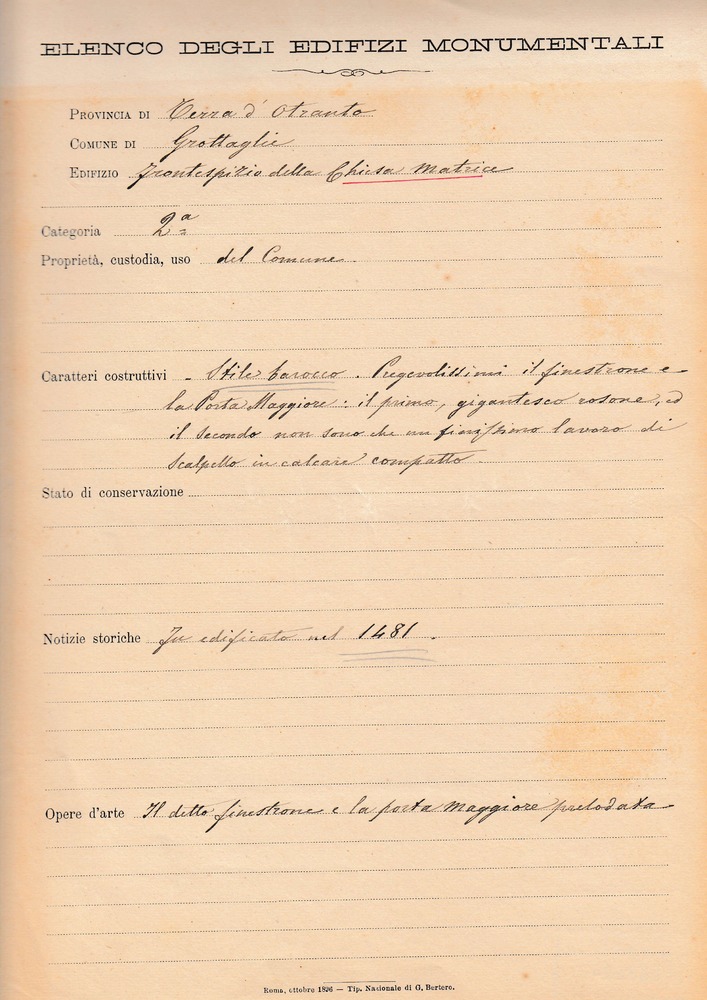 ELENCO DEGLI EDIFIZI MONUMENTALI
PROVINCIA DI Terra d'Otranto
COMUNE DI Grottaglie
EDIFIZIO Frontespizio della Chiesa Matrice
Categoria 2ª
Proprietà, custodia, uso del Comune.
Caratteri costruttivi - Stile barocco. Pregevolissimi il finestrone e
la Porta Maggiore: il primo, gigantesco rosone, ed
il secondo non sono che un finissimo lavoro di
scalpello in calcare compatto.
Stato di conservazione
Notizie storiche Fu edificato nel 1481.
Opere d'arte Il detto finestrone e la porta maggiore prelodata
Roma, ottobre 1896 — Tip. Nazionale di G. Bertero.